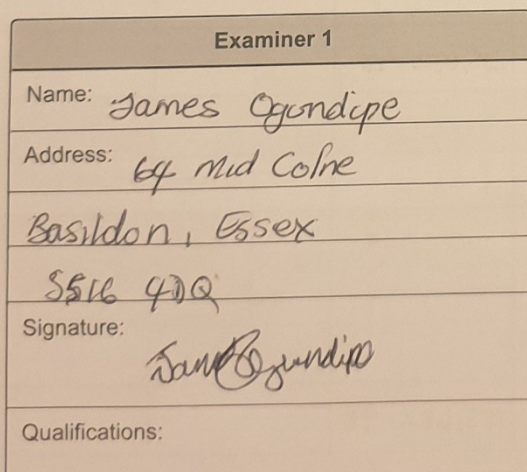 Examiner 1
Name: James Ogundipe
Address: 64 Mid Colne
Basildon, Essex
SS16 4DQ
Signature: James Ogundipe
Qualifications: